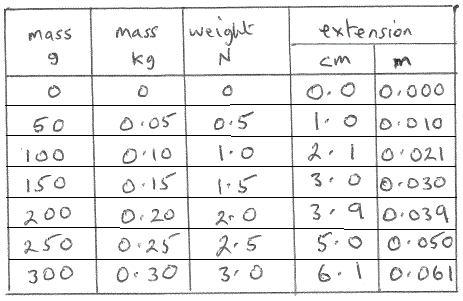 mass mass weight extension
g kg N cm m
0 0 0 0.0 0.000
50 0.05 0.5 1.0 0.010
100 0.10 1.0 2.1 0.021
150 0.15 1.5 3.0 0.030
200 0.20 2.0 3.9 0.039
250 0.25 2.5 5.0 0.050
300 0.30 3.0 6.1 0.061